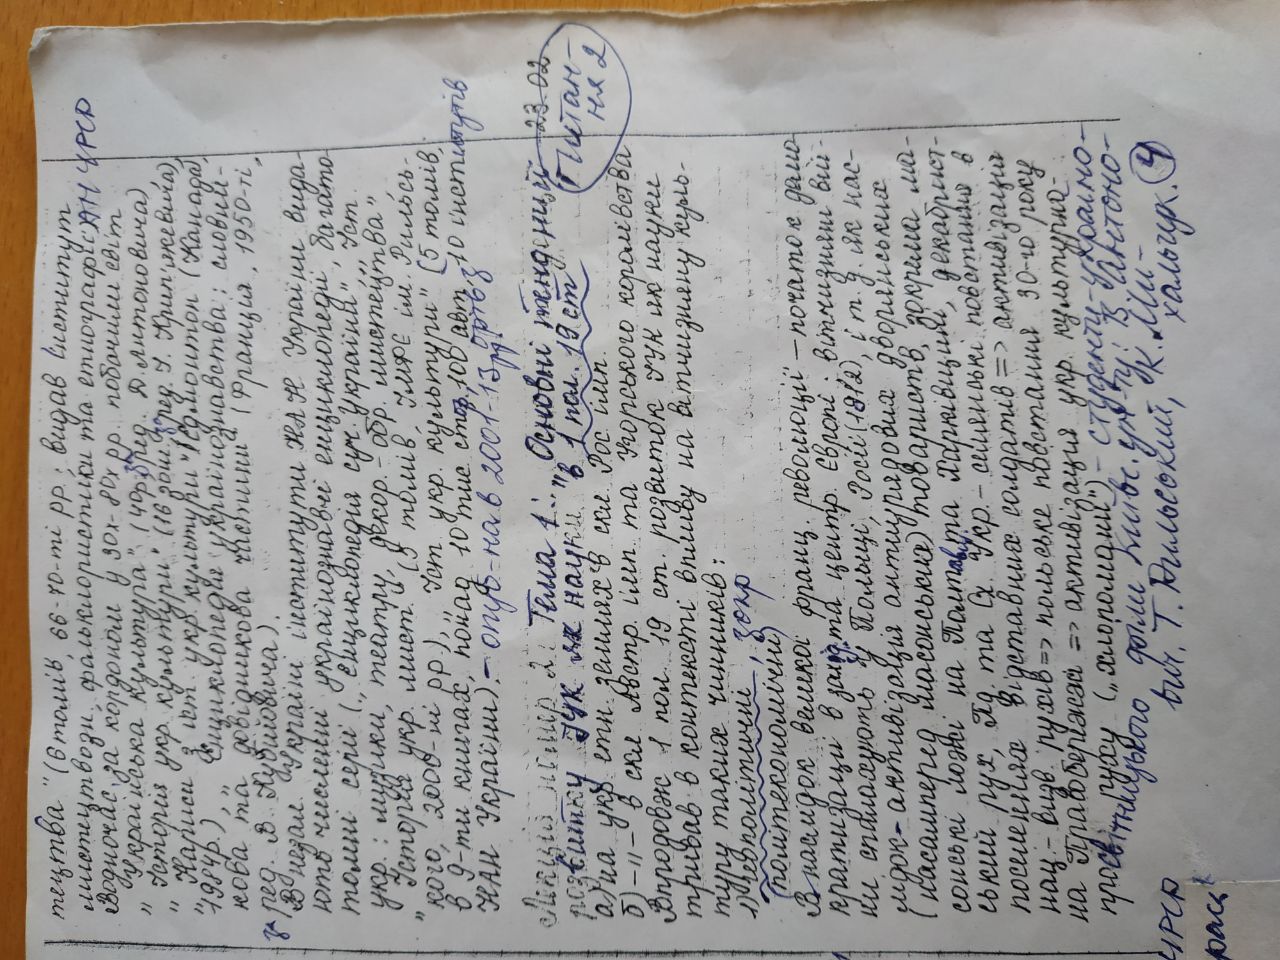 тецтва" (6 томів, 66-70-ті рр.; видав Інститут
мистецтвозн., фольклористики та етнографії АН УРСР
Водночас, за кордоном у 30х-80х рр. побачили світ
„Українська культура" (40р., з ред. Д. Антоновича),
„Історія укр. культури" (16 зош. з ред. І. Крип'якевича),
„Нариси з іст. укр. культури" Едмонтон (Канада,
1984р.), „Енциклопедія українознавства: словни-
кова та довідникова частини" (Франція, 1950-ті,
з ред. В. Кубійовича).
В незал. Україні інститути НАН України вида-
ють численні українознавчі енциклопедії, багато-
томні серії („Енциклопедія суч. України", „Іст.
укр.: музики, театру, декор.-обр. мистецтва",
„Історія укр. мист." (5 томів, ІМФЕ ім. Рильсь-
кого, 2000-ні рр.), „Іст. укр. культури" (5 томів,
в 9-ти книгах, понад 10 тис стор, 100 авт, 10 інститутів
НАН України). – опуб-на в 2001-13 рр.
Лекція номер 2. Тема 1: „Основні тенденції 23.02
розвитку ІУК як науки" в 1 пол. 19 ст Питан-
ня 2
а) на укр. етн. землях в скл. Рос. імп.
б) –"– в скл Австр. імп. та Угорського королівства
Впродовж 1 пол. 19 ст. розвиток ІУК як науки
тривав в контексті впливу на вітчизняну куль-
туру таких чинників:
1) геополітичні, зокр
(політекономічні)
Внаслідок великої франц. революції – початок демо
кратизації в захід. та центр. Європі; вітчизняні вій-
ни спалахують у Польщі, Росії (1812), і т. д. Як нас-
лідок – активізація антиурядових дворянських
(насамперед масонських) товариств, зокрема ма-
сонські ложі на Полтавщ. та Харківщині, декабрист-
ський рух, Пд. та Сх. Укр. – селянські повстання в
поселеннях відставних солдатів => активізація
нац.-визв. рухів => польське повстання 30-го року
на Правобережжі => активізація укр. культурно-
просвітницького руху („хлопомани") – студенти-україно-
філи Київс. ун-ту: В. Антоно-
вич. Т. Рильський, К. Ми-
хальчук. 4
УРСР